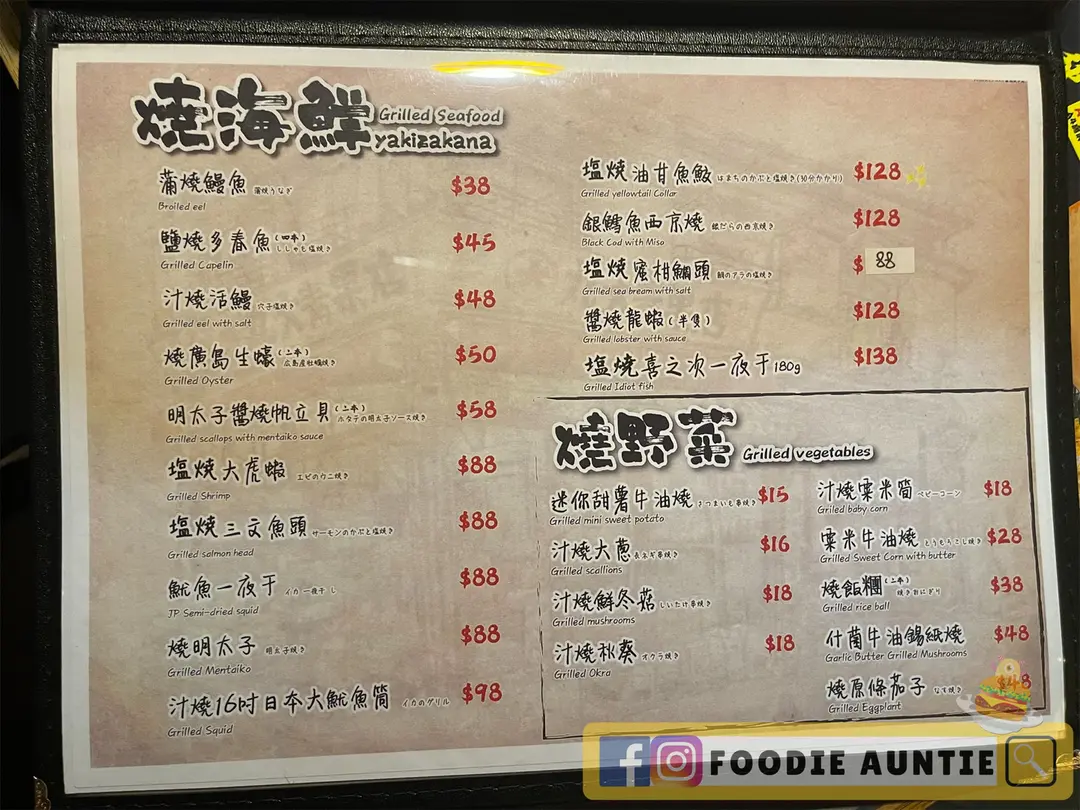 燒海鮮 Grilled Seafood
yakizakana
蒲燒鰻魚 蒲焼うなぎ $38
Broiled eel
鹽燒多春魚(四本) ししゃも塩焼き $45
Grilled Capelin
汁燒活鰻 穴子塩焼き $48
Grilled eel with salt
燒廣島生蠔(二本) 広島産牡蠣焼き $50
Grilled Oyster
明太子醬燒帆立貝(二本) ホタテの明太子ソース焼き $58
Grilled scallops with mentaiko sauce
塩燒大虎蝦 エビのウニ焼き $88
Grilled Shrimp
塩燒三文魚頭 サーモンのかぶと塩焼き $88
Grilled salmon head
魷魚一夜干 イカ一夜干し $88
JP Semi-dried squid
燒明太子 明太子焼き $88
Grilled Mentaiko
汁燒16吋日本大魷魚筒 イカのグリル $98
Grilled Squid
塩燒油甘魚鮫 はまちのかぶと塩焼き(30分かかり) $128
Grilled yellowtail Collar
銀鱈魚西京燒 銀だらの西京焼き $128
Black Cod with Miso
塩燒蜜柑鯛頭 鯛のアラの塩焼き $ 88
Grilled sea bream with salt
醬燒龍蝦(半隻) $128
Grilled lobster with sauce
塩燒喜之次一夜干180g $138
Grilled Idiot fish
燒野菜 Grilled vegetables
迷你甜薯牛油燒 さつまいも串焼き $15
Grilled mini sweet potato
汁燒大蔥 長ネギ串焼き $16
Grilled scallions
汁燒鮮冬菇 しいたけ串焼き $18
Grilled mushrooms
汁燒秋葵 オクラ焼き $18
Grilled Okra
汁燒粟米筒 ベビーコーン $18
Grilled baby corn
粟米牛油燒 とうもろこし焼き $28
Grilled Sweet Corn with butter
燒飯糰(二本) 焼きおにぎり $38
Grilled rice ball
什菌牛油錫紙燒 $48
Garlic Butter Grilled Mushrooms
燒原條茄子 なす焼き $48
Grilled Eggplant
FOODIE AUNTIE